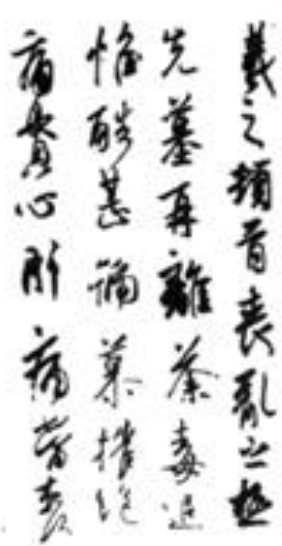 羲之頓首喪亂之極
先墓再離荼毒追
惟酷甚號慕摧絶
痛貫心肝痛當奈